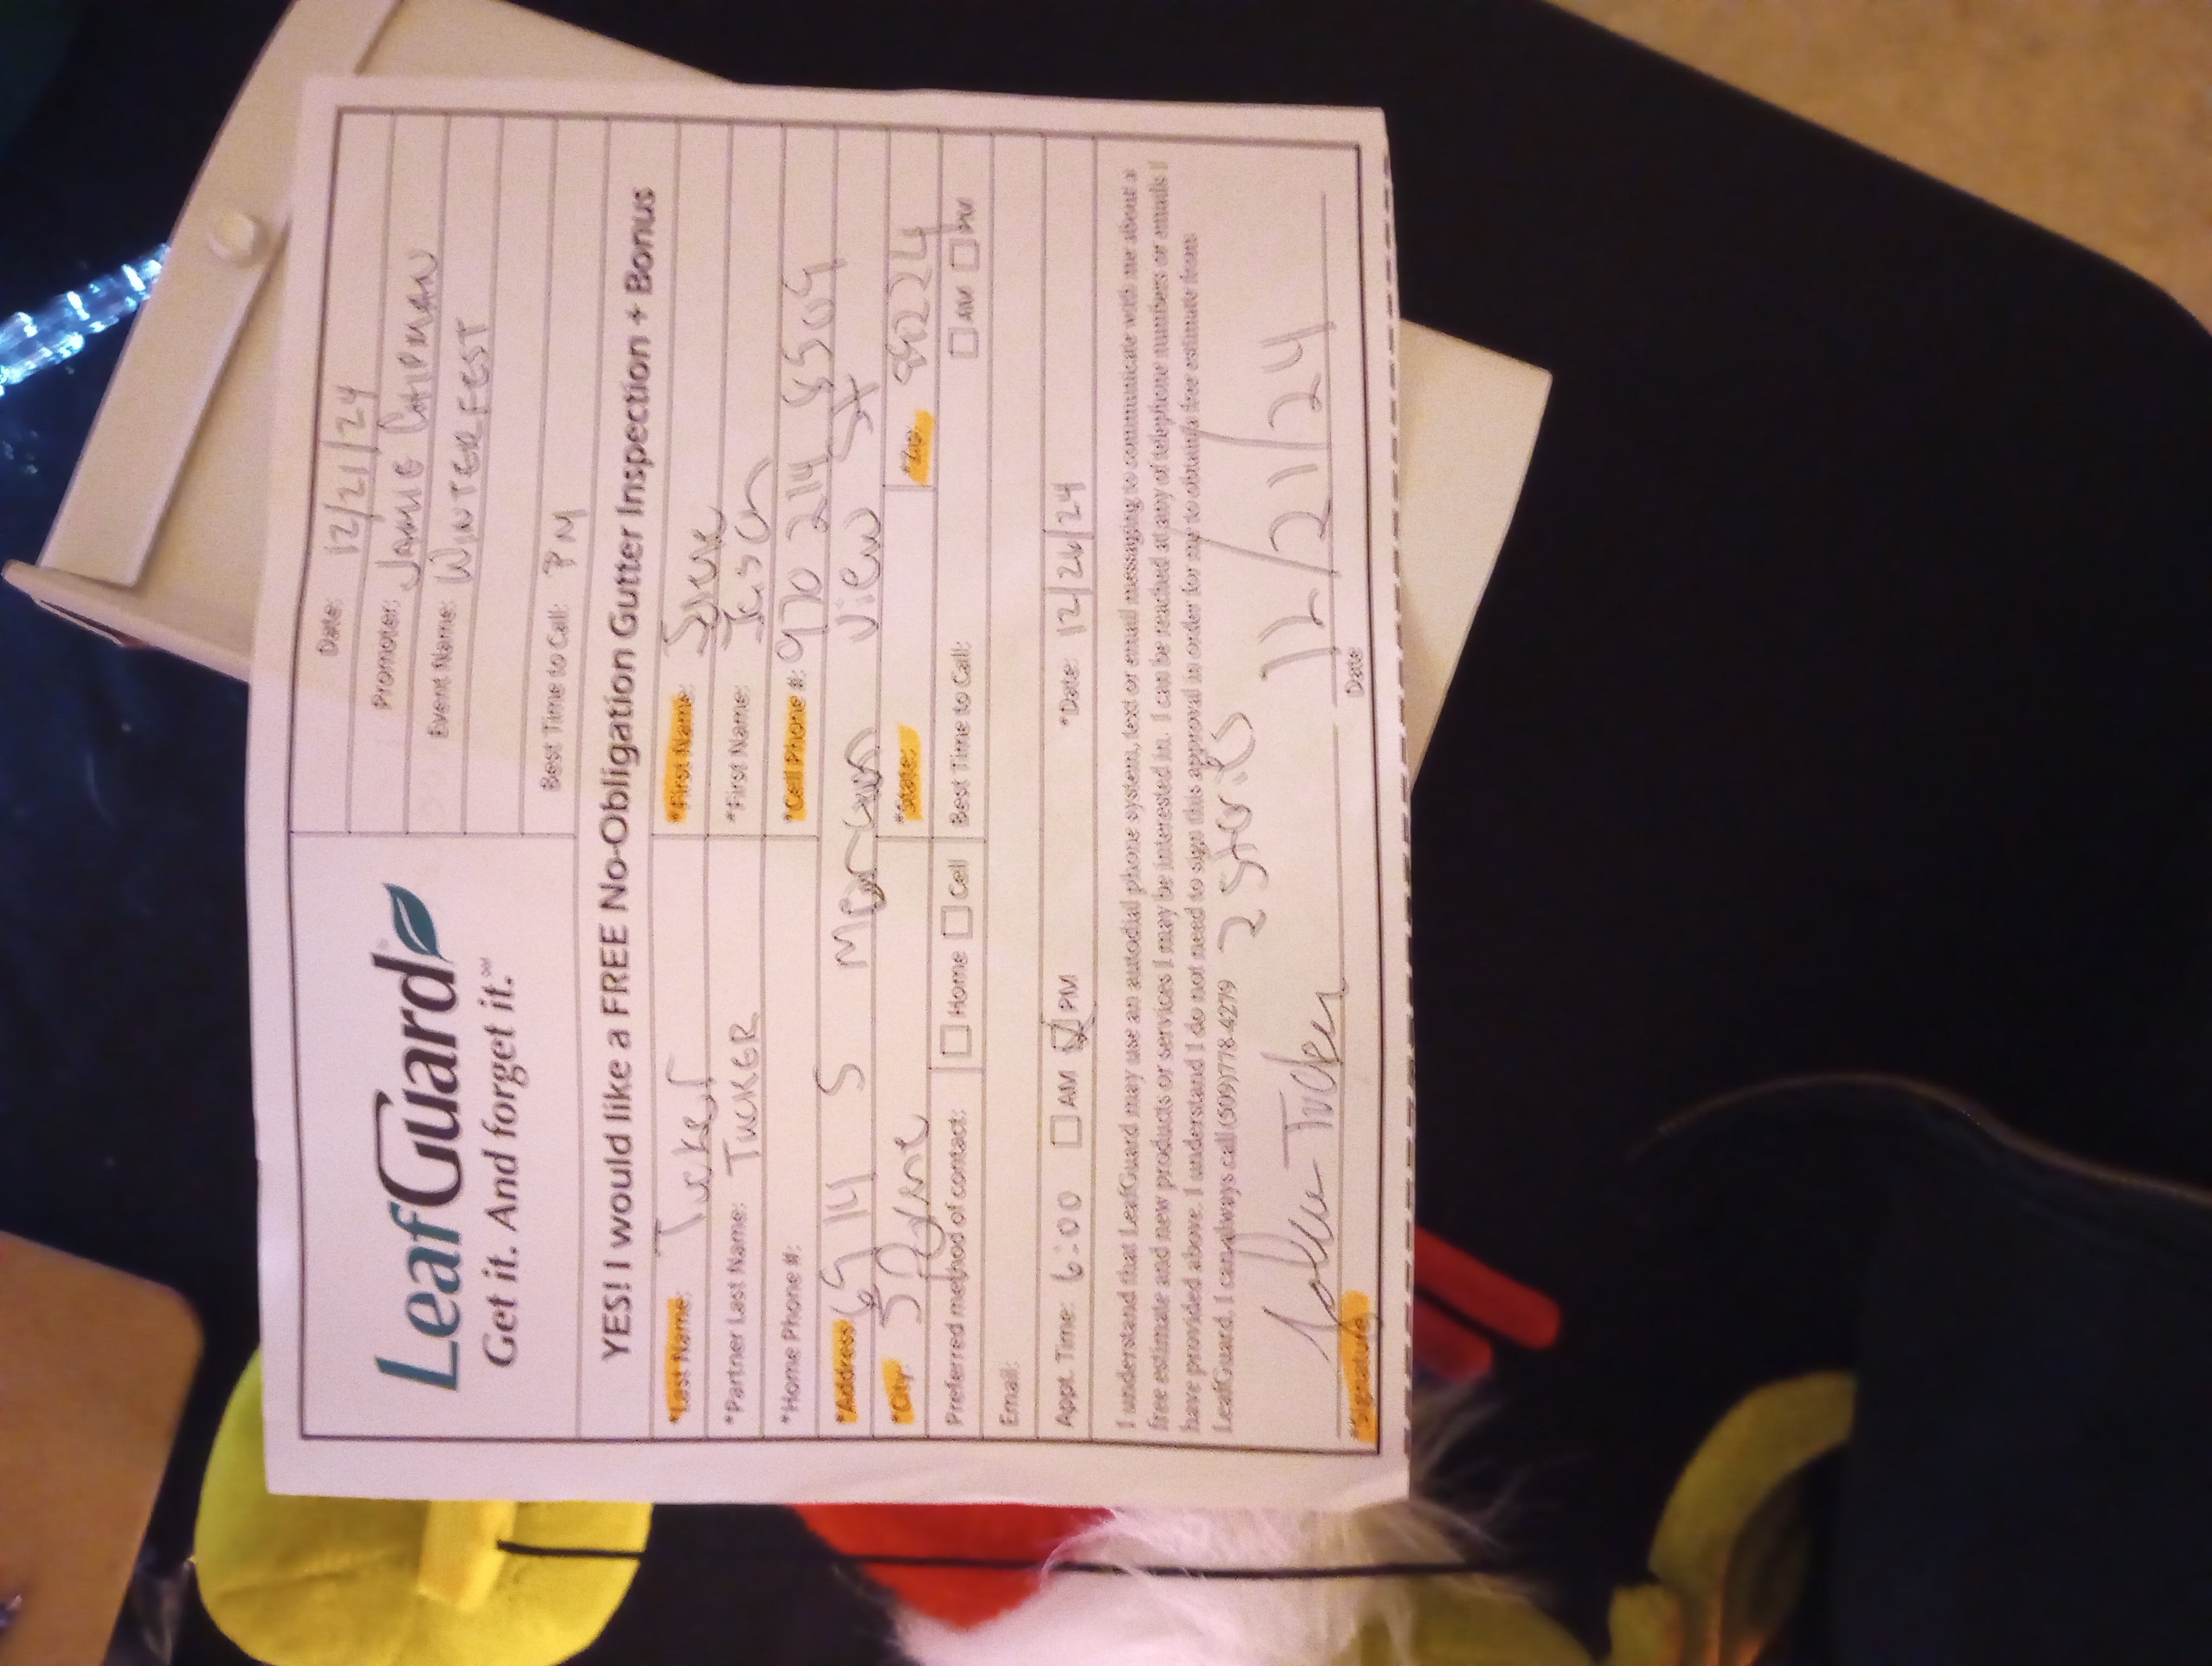 LeafGuard®
Get it. And forget it.℠
Date: 12/21/24
Promoter: Jamie
Event Name: WINTERFEST
Best Time to Call: PM
YES! I would like a FREE No-Obligation Gutter Inspection + Bonus
*Last Name: Tucker *First Name:
*Partner Last Name: TUCKER *First Name: Jason
*Home Phone #: *Cell Phone #: 970 214
*Address: 6914 S View
*City: *State: *Zip: 99224
Preferred method of contact: Home Cell Best Time to Call: AM PM
Email:
Appt. Time: 6:00 AM PM *Date: 12/26/24
I understand that LeafGuard may use an autodial phone system, text or email messaging to communicate with me about a
free estimate and new products or services I may be interested in. I can be reached at any of telephone numbers or emails I
have provided above. I understand I do not need to sign this approval in order for me to obtain a free estimate from
LeafGuard. I can always call (509)778-4279 2 stories
Tucker 12/21/24
*Signature Date